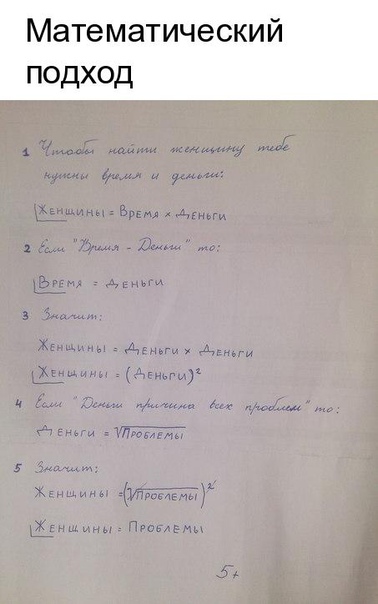 Математический
подход
1 Чтобы найти женщину тебе
нужны время и деньги:
Женщины = Время × Деньги
2 Если "Время - Деньги" то:
Время = Деньги
3 Значит:
Женщины = Деньги × Деньги
Женщины = (Деньги)²
4 Если "Деньги причина всех проблем" то:
Деньги = √Проблемы
5 Значит:
Женщины = (√Проблемы)²
Женщины = Проблемы
5+